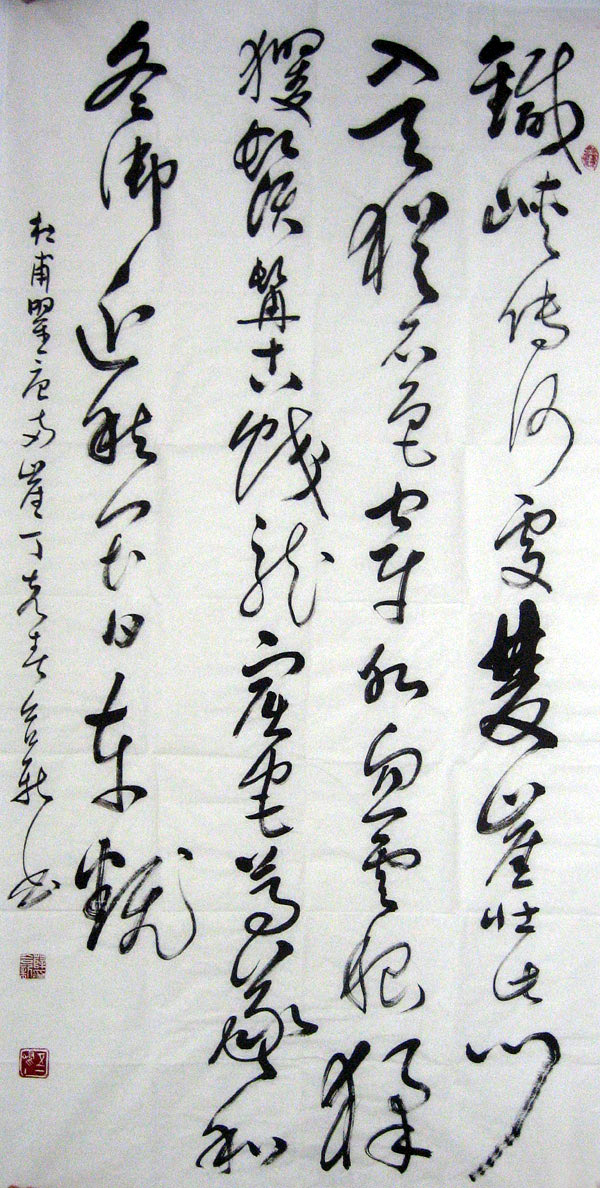 峽傳何處雙崖壯此門
入天猶石色穿水忽雲根猱
玃鬚髯古蛟龍窟宅尊羲和
冬御近愁畏日車翻
杜甫瞿唐兩崖丁亥春